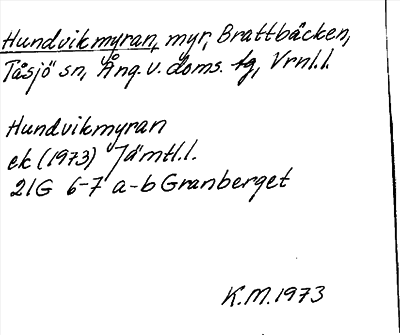 Hundvikmyran, myr, Brattbäcken,
Tåsjö sn, Ång. v. doms. tg, Vrnl.l.
Hundvikmyran
ek (1973) Jämtl.l.
21G 6-7 a-b Granberget
K.M. 1973